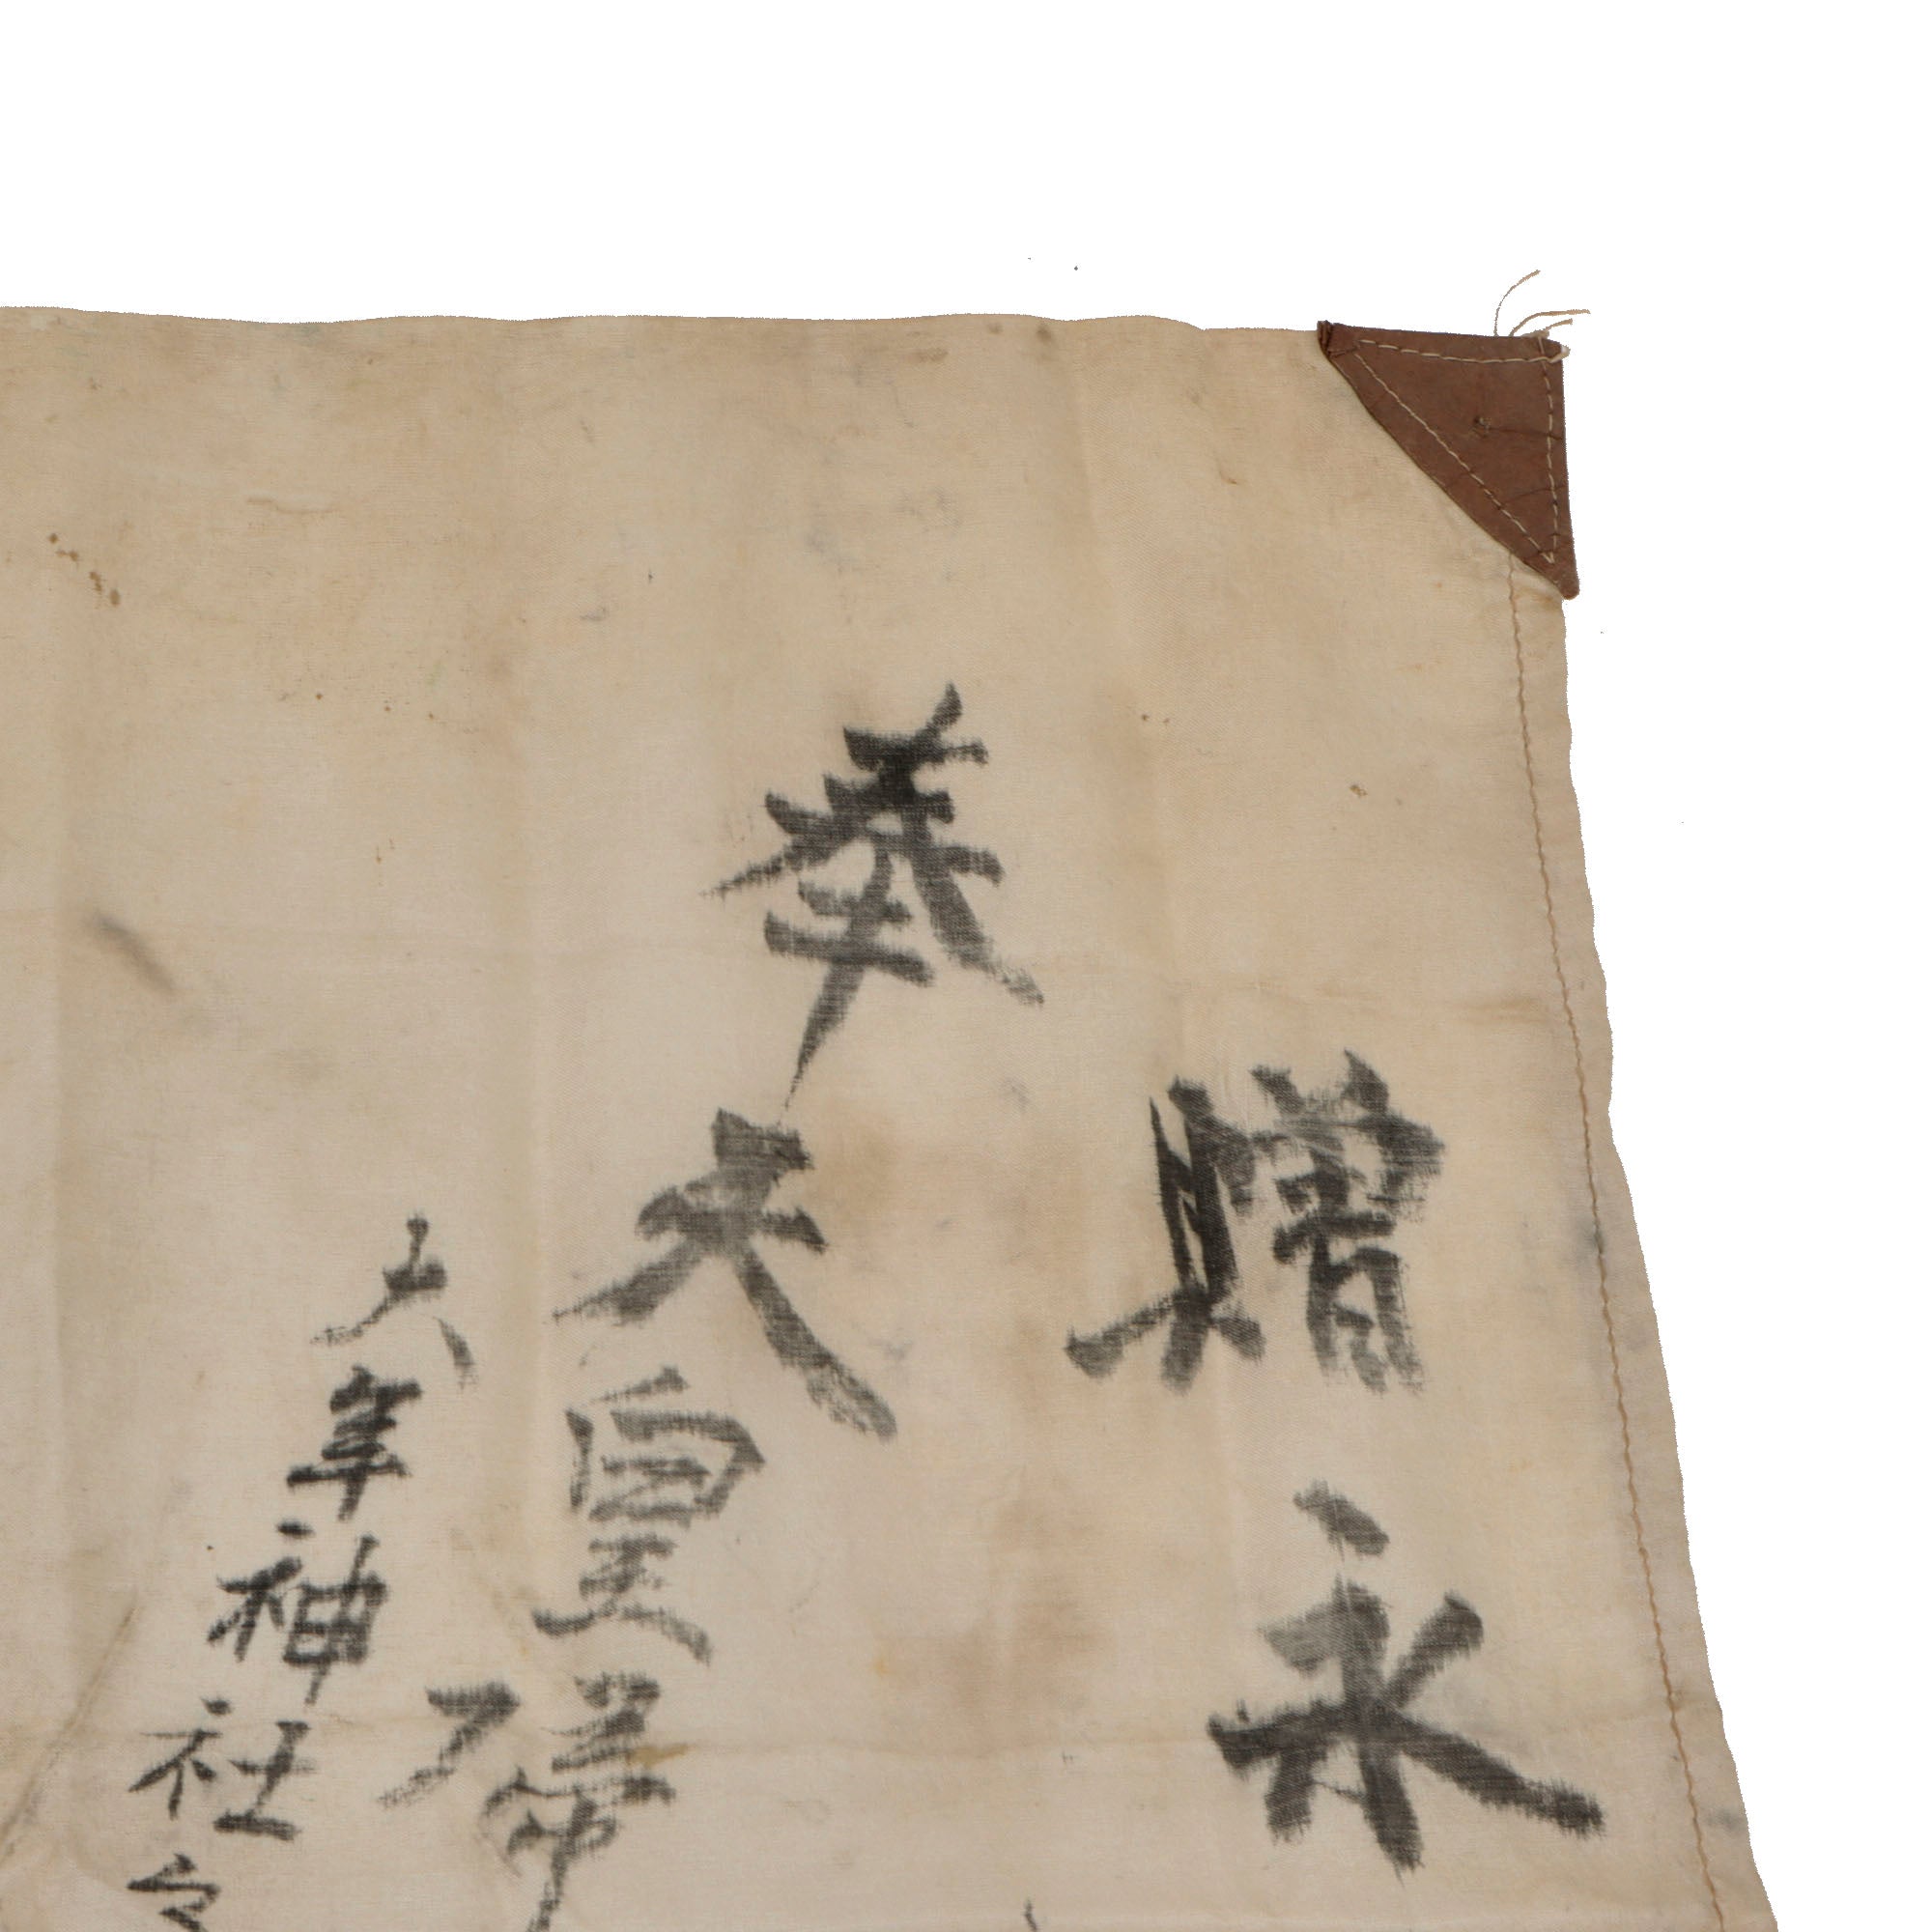 贈永
奉天皇
六年神社